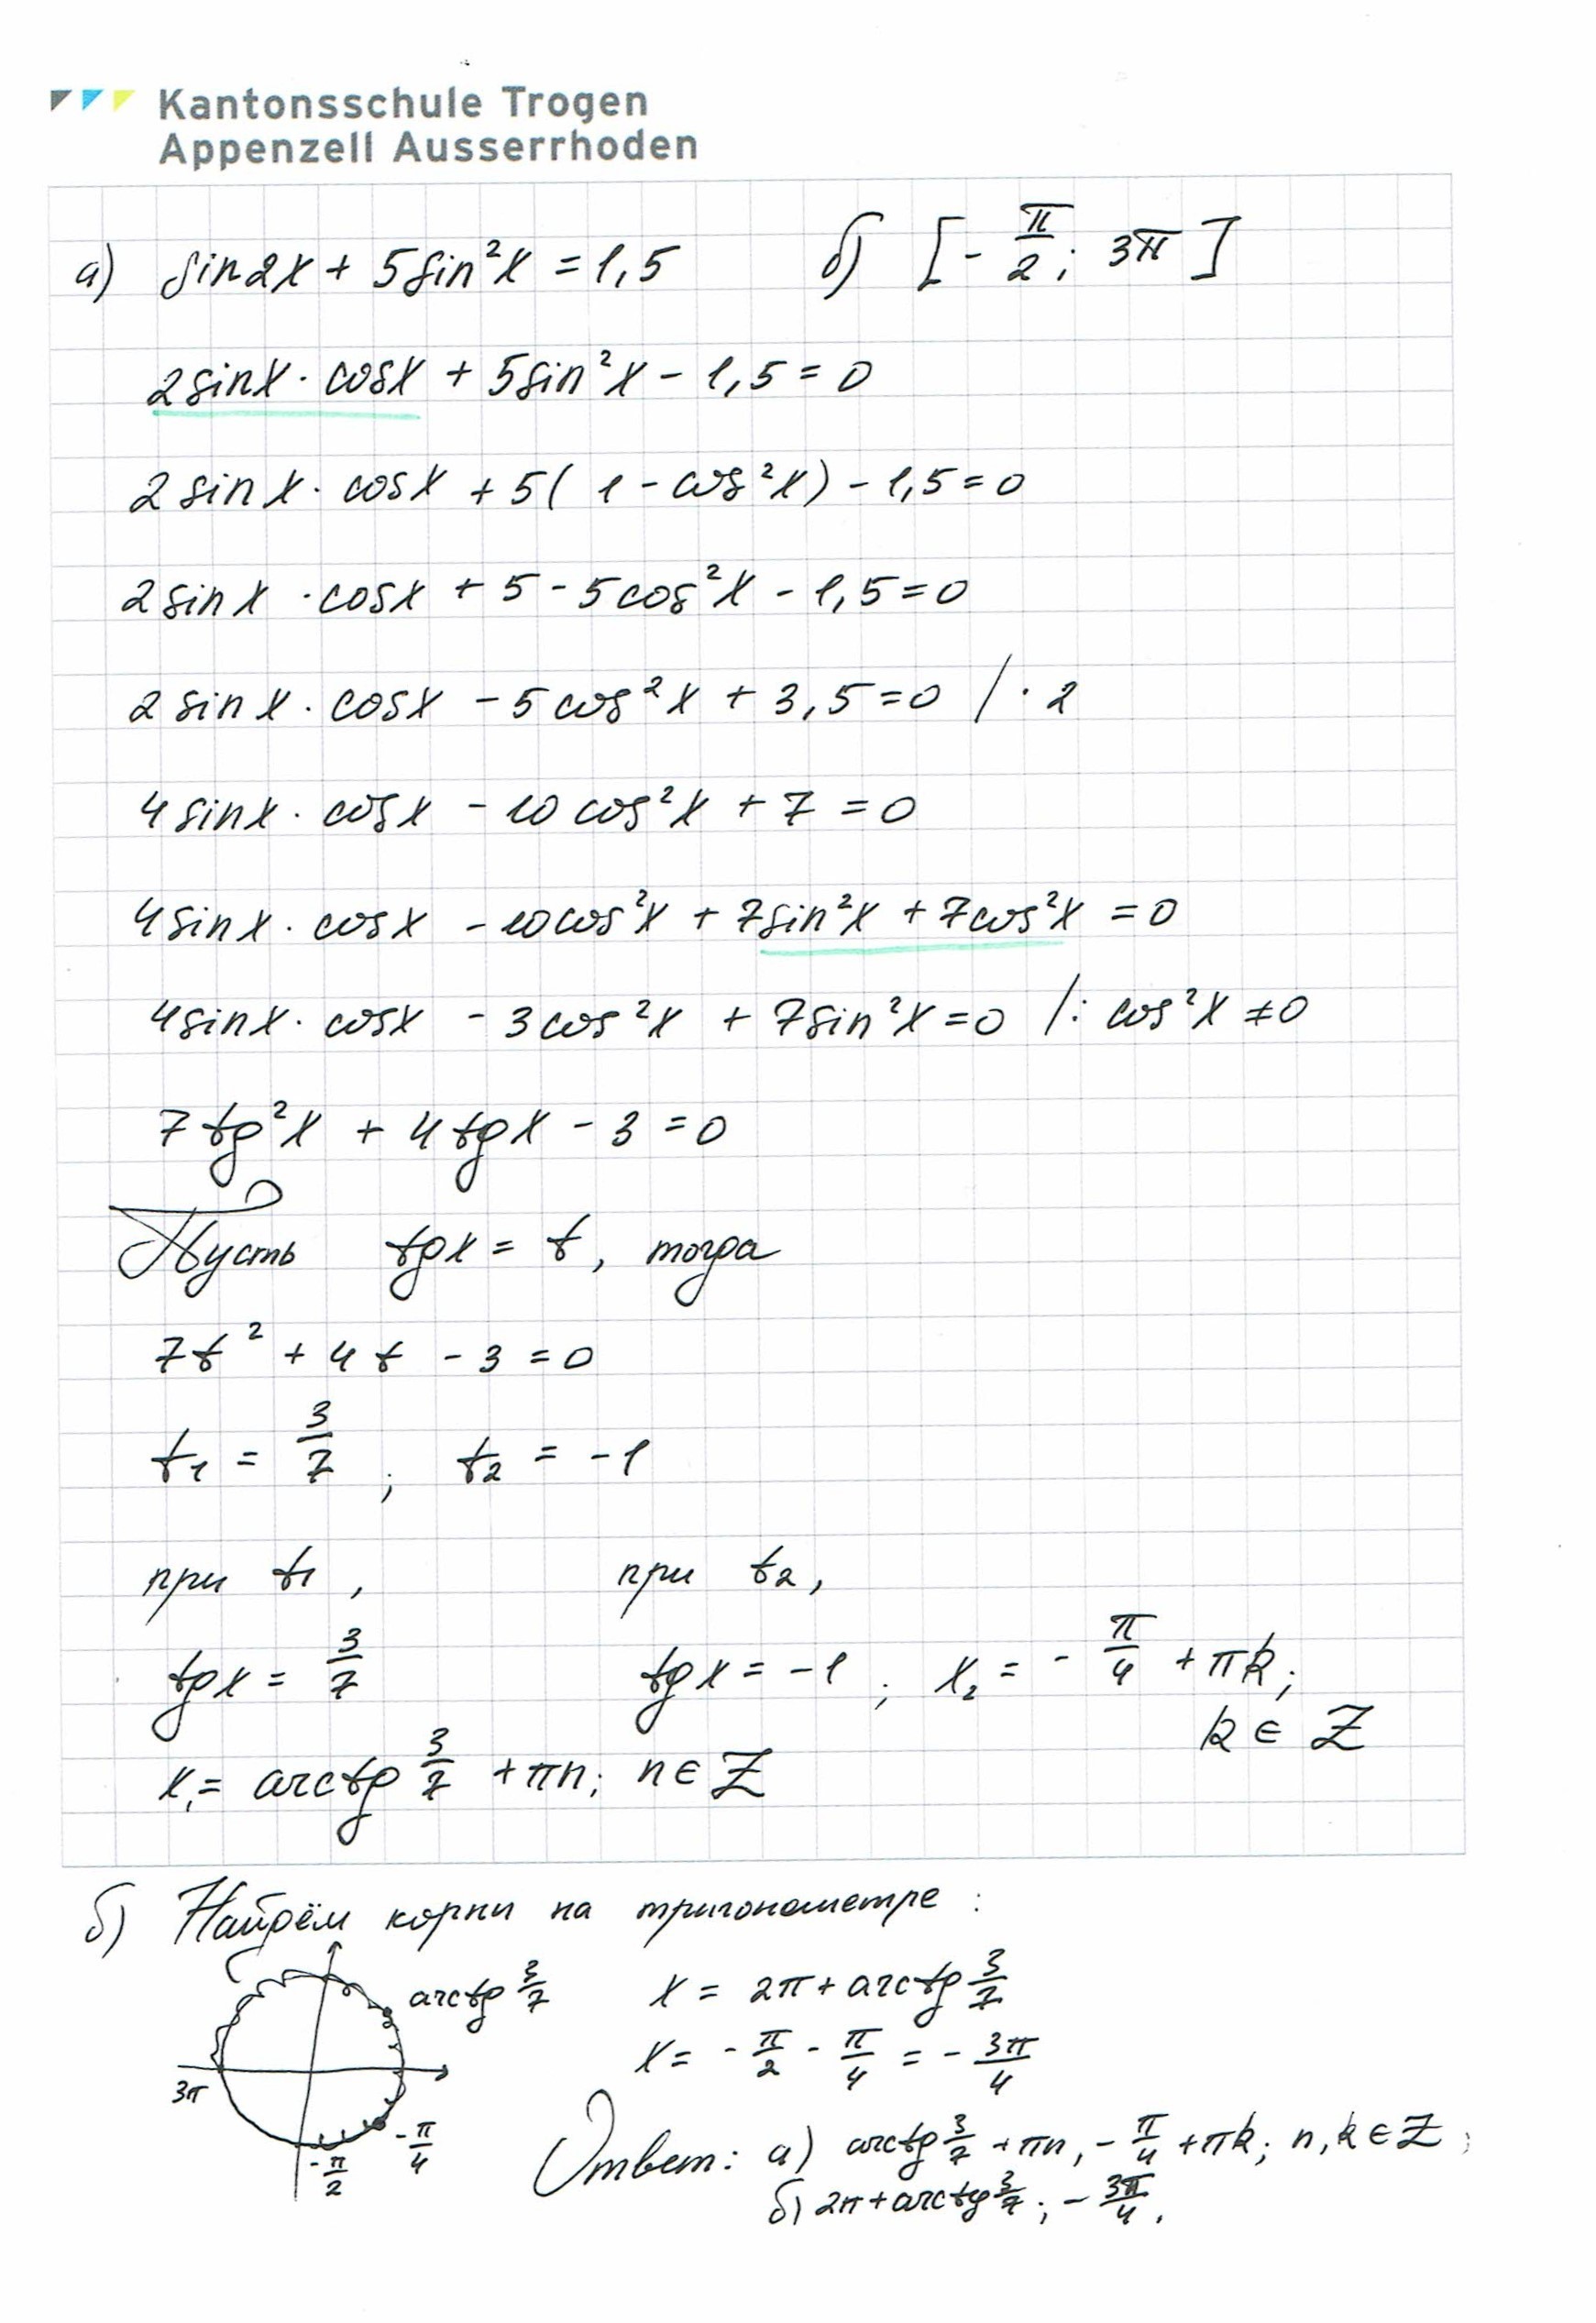 Kantonsschule Trogen
Appenzell Ausserrhoden
а) sin2x + 5sin²x = 1,5 б) [-π/2; 3π]
2sinx · cosx + 5sin²x - 1,5 = 0
2sinx · cosx + 5(1 - cos²x) - 1,5 = 0
2sinx · cosx + 5 - 5cos²x - 1,5 = 0
2sinx · cosx - 5cos²x + 3,5 = 0 / · 2
4sinx · cosx - 10cos²x + 7 = 0
4sinx · cosx - 10cos²x + 7sin²x + 7cos²x = 0
4sinx · cosx - 3cos²x + 7sin²x = 0 /: cos²x ≠ 0
7tg²x + 4tgx - 3 = 0
Пусть tgx = t, тогда
7t² + 4t - 3 = 0
t₁ = 3/7; t₂ = -1
при t₁, при t₂,
tgx = 3/7 tgx = -1; x₂ = -π/4 + πk;
k ∈ Z
x₁ = arctg 3/7 + πn; n ∈ Z
б) Найдём корни на тригонометре:
arctg 3/7 x = 2π + arctg 3/7
x = -π/2 - π/4 = -3π/4
3π
-π/4
-π/2
Ответ: а) arctg 3/7 + πn, -π/4 + πk; n, k ∈ Z;
б) 2π + arctg 3/7; -3π/4.